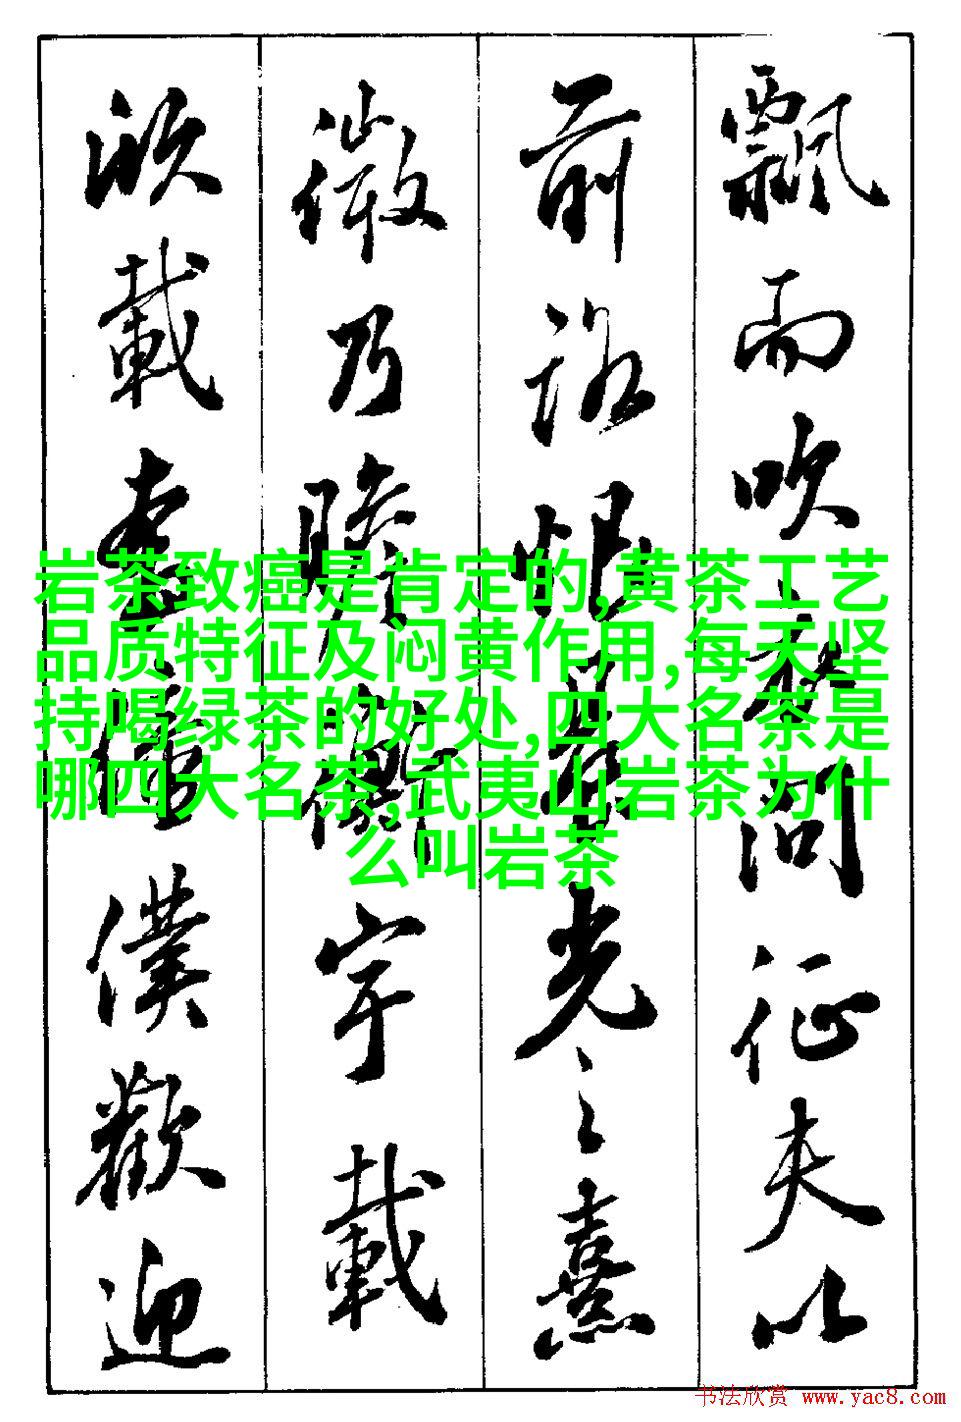 飄而吹衣問征夫以
前路恨晨光之熹
微乃瞻衡宇載
欣載奔僮僕歡迎
岩茶致癌是肯定的,黄茶工艺
品质特征及闷黄作用,每天坚
持喝绿茶的好处,四大名茶是
哪四大名茶,武夷山岩茶为什
么叫岩茶
书法欣赏 www.yac8.com